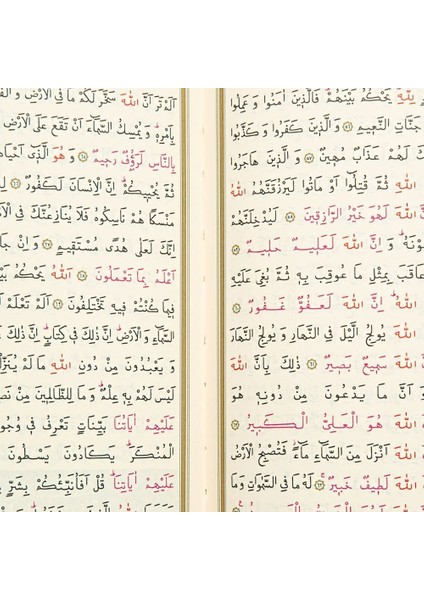 لِلّٰهِ يَحْكُمُ بَيْنَهُمْ فَالَّذٖينَ اٰمَنُوا وَعَمِلُوا
جَنَّاتِ النَّعٖيمِ ﴿٥٦﴾ وَالَّذٖينَ كَفَرُوا وَكَذَّبُوا
لَهُمْ عَذَابٌ مُهٖينٌ ﴿٥٧﴾ وَالَّذٖينَ هَاجَرُوا
اللّٰهِ ثُمَّ قُتِلُٓوا اَوْ مَاتُوا لَيَرْزُقَنَّهُمُ اللّٰهُ
اللّٰهَ لَهُوَ خَيْرُ الرَّازِقٖينَ ﴿٥٨﴾ لَيُدْخِلَنَّهُمْ
وْنَهُ وَاِنَّ اللّٰهَ لَعَلٖيمٌ حَلٖيمٌ ﴿٥٩﴾
عَاقَبَ بِمِثْلِ مَا عُوقِبَ بِهٖ ثُمَّ بُغِيَ عَلَيْهِ
اللّٰهُ اِنَّ اللّٰهَ لَعَفُوٌّ غَفُورٌ ﴿٦٠﴾
اللّٰهَ يُولِجُ الَّيْلَ فِي النَّهَارِ وَيُولِجُ النَّهَارَ
اللّٰهَ سَمٖيعٌ بَصٖيرٌ ﴿٦١﴾ ذٰلِكَ بِاَنَّ اللّٰهَ
وَاَنَّ مَا يَدْعُونَ مِنْ دُونِهٖ هُوَ
اللّٰهَ هُوَ الْعَلِيُّ الْكَبٖيرُ ﴿٦٢﴾
اللّٰهَ اَنْزَلَ مِنَ السَّمَٓاءِ مَٓاءً فَتُصْبِحُ الْاَرْضُ
اللّٰهَ لَطٖيفٌ خَبٖيرٌ ﴿٦٣﴾ لَهُ مَا فِي السَّمٰوَاتِ وَمَا
اَلَمْ تَرَ اَنَّ اللّٰهَ سَخَّرَ لَكُمْ مَا فِي الْاَرْضِ
بِاَمْرِهٖ وَيُمْسِكُ السَّمَٓاءَ اَنْ تَقَعَ عَلَى الْاَرْضِ
بِالنَّاسِ لَرَؤُفٌ رَحٖيمٌ ﴿٦٥﴾ وَهُوَ الَّذٖٓي اَحْيَا
ثُمَّ يُحْيٖيكُمْ اِنَّ الْاِنْسَانَ لَكَفُورٌ ﴿٦٦﴾
مَنْسَكًا هُمْ نَاسِكُوهُ فَلَا يُنَازِعُنَّكَ فِي الْا
اِنَّكَ لَعَلٰى هُدًى مُسْتَقٖيمٍ ﴿٦٧﴾ وَاِنْ جَا
اَعْلَمُ بِمَا تَعْمَلُونَ ﴿٦٨﴾ اَللّٰهُ يَحْكُمُ بَ
فٖيمَا كُنْتُمْ فٖيهِ تَخْتَلِفُونَ ﴿٦٩﴾ اَلَمْ تَعْلَمْ اَ
السَّمَٓاءِ وَالْاَرْضِ اِنَّ ذٰلِكَ فٖي كِتَابٍ اِنَّ ذٰلِكَ
وَيَعْبُدُونَ مِنْ دُونِ اللّٰهِ مَا لَمْ يُنَزِّلْ
لَيْسَ لَهُمْ بِهٖ عِلْمٌ وَمَا لِلظَّالِمٖينَ مِنْ نَصٖ
عَلَيْهِمْ اٰيَاتُنَا بَيِّنَاتٍ تَعْرِفُ فٖي وُجُو
الْمُنْكَرَ يَكَادُونَ يَسْطُونَ
عَلَيْهِمْ اٰيَاتِنَا قُلْ اَفَاُنَبِّئُكُمْ بِشَرٍّ